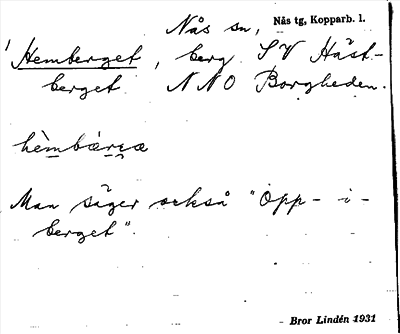 Nås sn, Nås tg, Kopparb. l.
Hemberget, berg SV Häst-
berget NNO Borgheden.
hèmbǽrɛæ
Man säger också "Opp-i-
berget".
Bror Lindén 1931